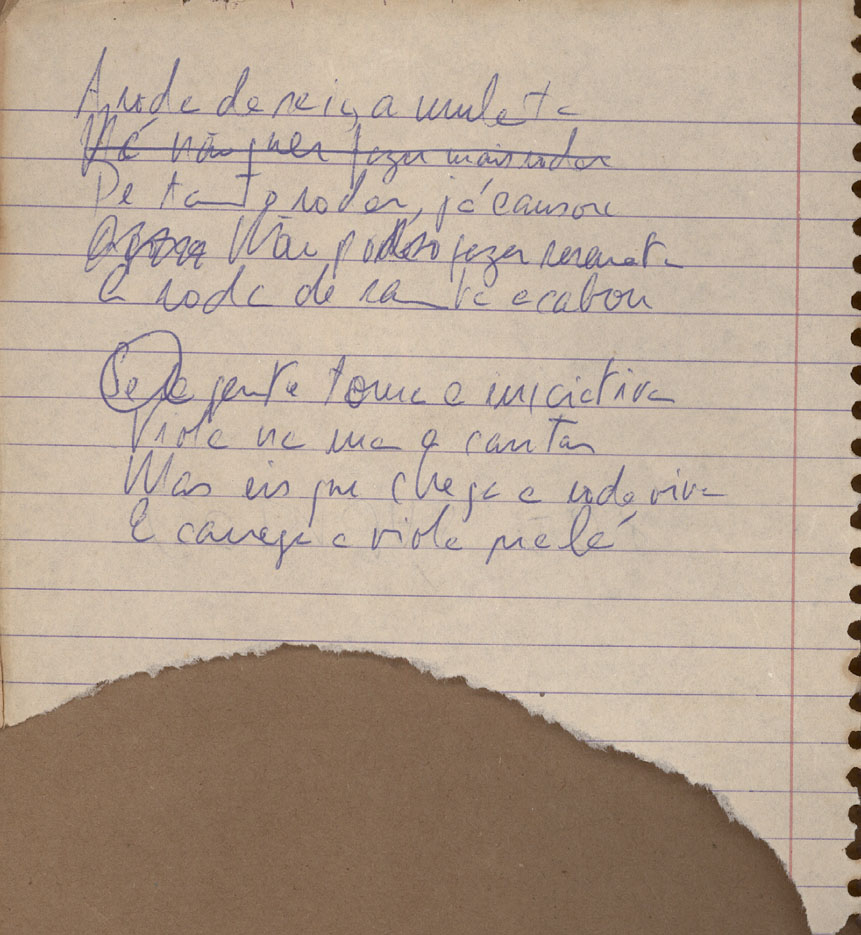 A roda da saia, a mulata
Já não quer fazer mais rodar
De tanto rodar, já cansou
Agora Não posso fazer serenata
A roda de samba acabou
Se a gente toma a iniciativa
Viola na rua a cantar
Mas eis que chega a roda viva
E carrega a viola pra lá